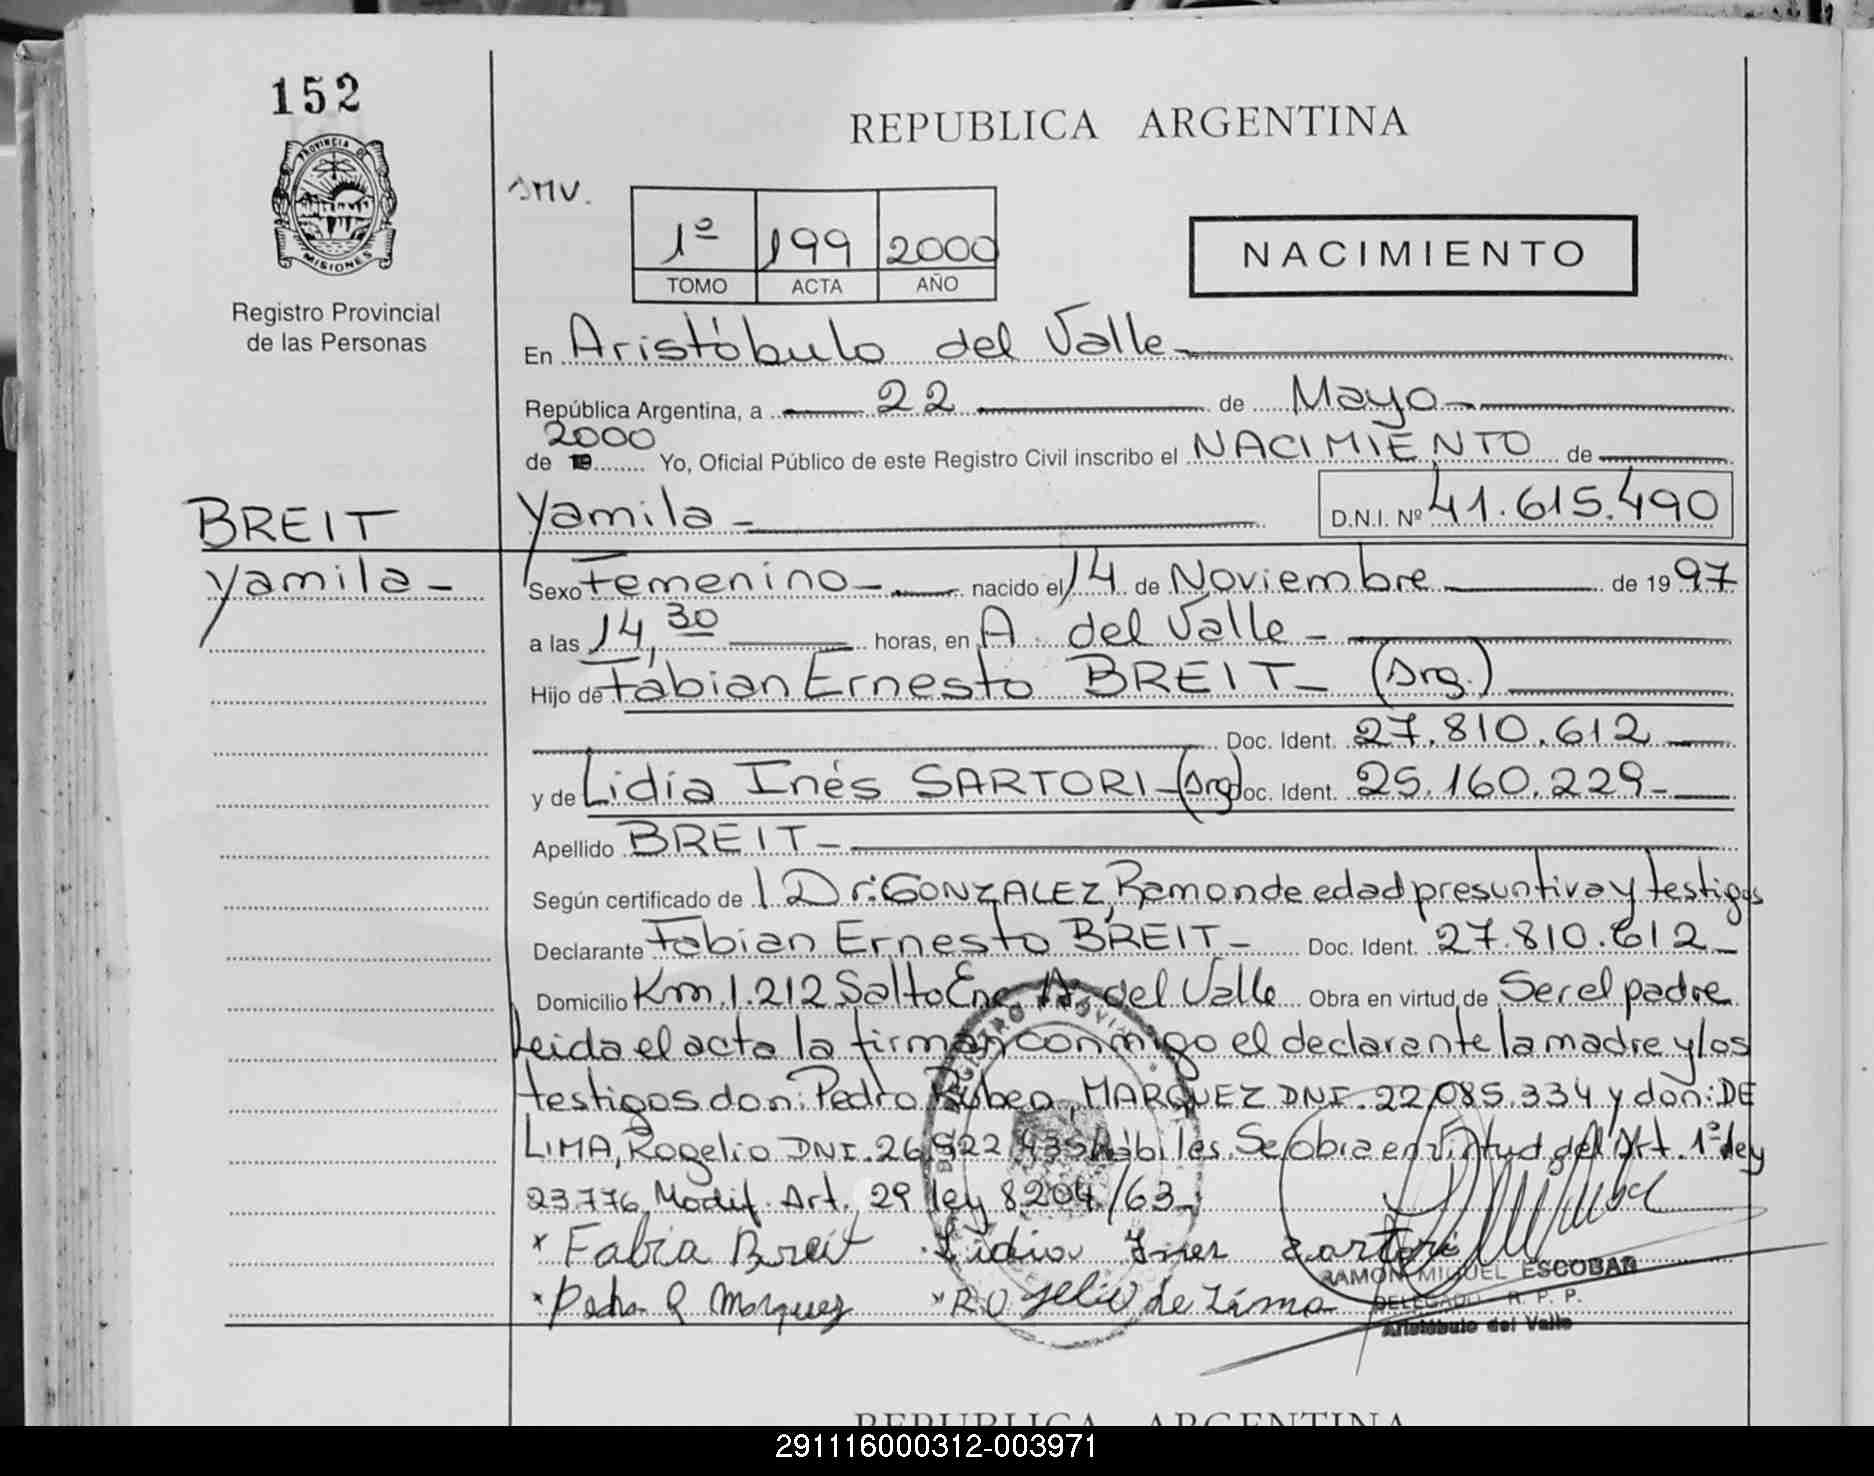 152
PROVINCIA DE
MISIONES
Registro Provincial
de las Personas
REPUBLICA ARGENTINA
1º 199 2000
TOMO ACTA AÑO
NACIMIENTO
En Aristóbulo del Valle
República Argentina, a 22 de Mayo
2000
de 19 Yo, Oficial Público de este Registro Civil inscribo el NACIMIENTO de
BREIT
Yamila D.N.I. Nº 41.615.490
Yamila
Sexo Femenino nacido el 14 de Noviembre de 1997
a las 14,30 horas, en A. del Valle
Hijo de Fabian Ernesto BREIT (Arg.)
Doc. Ident. 27.810.612
y de Lidia Inés SARTORI (Arg) Doc. Ident. 25.160.229
Apellido BREIT
Según certificado de l Dr. GONZALEZ, Ramon de edad presuntiva y testigos
Declarante Fabian Ernesto BREIT Doc. Ident. 27.810.612
Domicilio Km. 1.212 Salto Enc. A. del Valle Obra en virtud de Ser el padre
Leida el acta la firman conmigo el declarante la madre y los
testigos don: Pedro Ruben MARQUEZ DNI. 22.085.334 y don: DE
LIMA, Rogelio DNI. 26.922.435 hábiles. Se obra en virtud del Art. 1º ley
23.776 Modif. Art. 29 ley 8204/63
* Fabia Breit Lidia Ines Sartori
* Pedro R Marquez * ROgelio de Lima
RAMON MIGUEL ESCOBAR
DELEGADO R. P. P.
Aristóbulo del Valle
REPUBLICA ARGENTINA
291116000312-003971